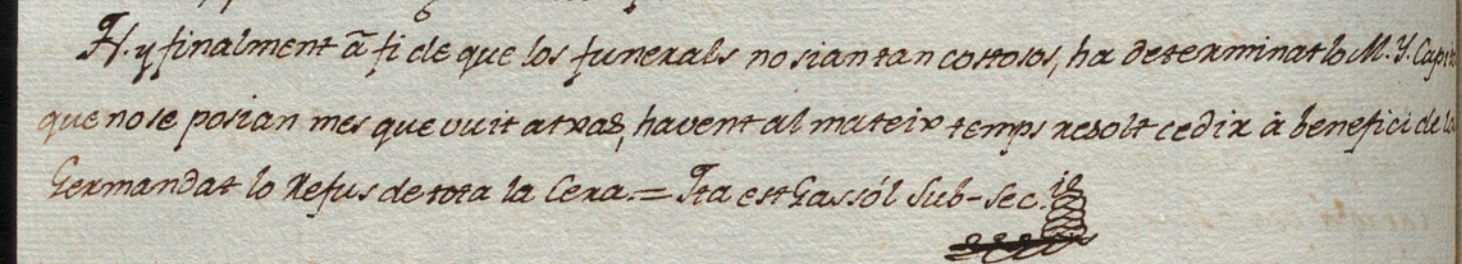 H. y finalment â fi de que los funerals no sian tan costosos, ha determinat lo M. Y. Capi
que no se posian mes que vuit atxas, havent al mateix temps resolt cedir â benefici de la
Germandat lo Refus de tota la Cera. = Ita est Gassól Sub-Sec.